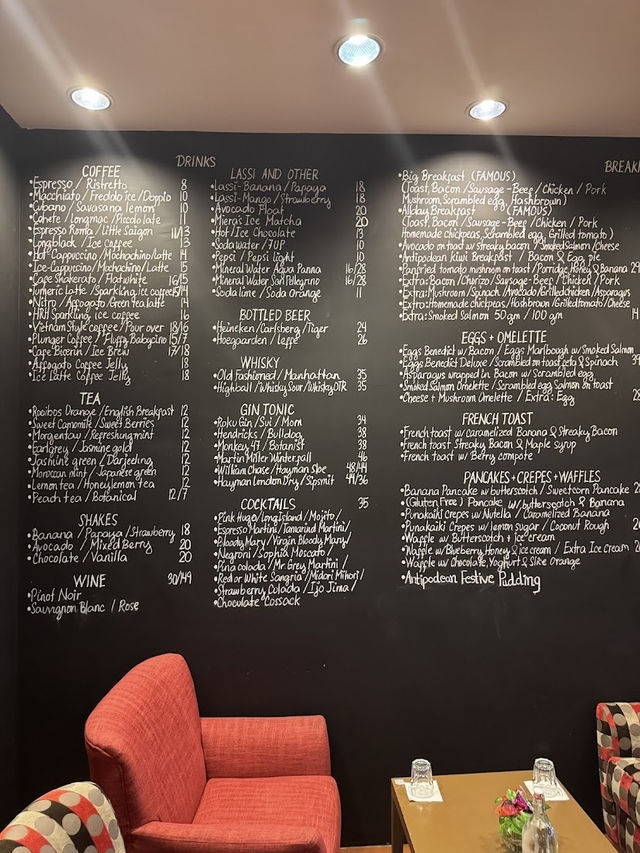 DRINKS
COFFEE
•Espresso / Ristretto 8
•Macchiato / Freddo ice / Doppio 10
•Cubano / Savasana lemon 10
•Cahete / Longmac / Piccolo late 11
•Espresso Roma / Little Saigon 11/13
•Longblack / Ice coffee 13
•Hot Cappuccino / Mochachino / Latte 14
•Ice-Cappuccino / Mochachino / Latte 15
•Cafe Shakerato / Flat White 16/15
•Tumeric Latte / Sparkling ice coffee 15/14
•Nitro / Affogato / Green tea latte 14
•HRH Sparkling ice coffee 16
•Vietnam Style coffee / Pour over 18/16
•Plunger Coffee / Fluffy Babycino 15/7
•Cafe Bicerin / Ice Brew 17/18
•Affogato Coffee Jelly 18
•Ice Latte Coffee Jelly 18
TEA
•Rooibos Orange / English Breakfast 12
•Sweet Camomile / Sweet Berries 12
•Morgentau / Refreshing mint 12
•Earlgrey / Jasmine gold 12
•Jasmine green / Darjeeling 12
•Moroccan mint / Japanese green 12
•Lemon tea / Honeylemon tea 12
•Peach tea / Botanical 12/7
SHAKES
•Banana / Papaya / Strawberry 18
•Avocado / Mixed Berry 20
•Chocolate / Vanilla 20
WINE 30/149
•Pinot Noir
•Sauvignon Blanc / Rose
LASSI AND OTHER
•Lassi-Banana / Papaya 18
•Lassi-Mango / Strawberry 18
•Avocado Float 20
•Miera's Ice Matcha 20
•Hot / Ice Chocolate 15
•Soda water / 7UP 10
•Pepsi / Pepsi Light 10
•Mineral Water Aqua Panna 16/28
•Mineral Water San Pellegrino 16/28
•Soda lime / Soda Orange 11
BOTTLED BEER
•Heineken / Carlsberg / Tiger 24
•Hoegaarden / Leffe 26
WHISKY
•Old Fashioned / Manhattan 35
•Highball / Whisky Sour / Whisky OTR 35
GIN TONIC
•Roku Gin / Sui / Mom 34
•Hendricks / Bulldog 38
•Monkey 47 / Botanist 38
•Martin Miller Winterfall 46
•William Chase / Hayman Sloe 48/44
•Hayman London Dry / Sipsmit 44/36
COCKTAILS 35
•Pink Hugo / Long Island / Mojito /
Espresso Martini / Tamarind Martini /
•Bloody Mary / Virgin Bloody Mary /
•Negroni / Sophia Moscato /
•Pina colada / Mr Grey Martini /
•Red or White Sangria / Midori Midori /
•Strawberry Colada / Ijo Jima /
•Chocolate Cossack
BREAKF
•Big Breakfast (FAMOUS)
(Toast, Bacon / Sausage - Beef / Chicken / Pork
Mushroom, Scrambled egg, Hashbrown)
•Allday Breakfast (FAMOUS)
(Toast, Bacon / Sausage - Beef / Chicken / Pork
Homemade chickpeas, Scrambled egg, Grilled tomato)
•Avocado on toast w streaky bacon / Smoked Salmon / Cheese
•Antipodean Kiwi Breakfast / Bacon & Egg pie
•Panfried tomato mushroom on toast / Porridge, Honey & Banana 29
•Extra: Bacon / Chorizo / Sausage - Beef / Chicken / Pork
•Extra: Mushroom / Spinach / Avocado / Grilled chicken / Asparagus
•Extra: Homemade chickpeas / Hashbrown / Grilled tomato / Cheese
•Extra: Smoked Salmon 50gm / 100gm 14
EGGS + OMELETTE
•Eggs Benedict w Bacon / Eggs Marlbough w Smoked Salmon
•Eggs Benedict Deluxe / Scrambled on toast feta & Spinach 39
•Asparagus wrapped in Bacon w Scrambled egg
•Smoked Salmon Omelette / Scrambled egg Salmon on toast
•Cheese + Mushroom Omelette / Extra: Egg 28
FRENCH TOAST
•French toast w caramelized Banana & Streaky Bacon
•French toast Streaky Bacon & Maple syrup
•French toast w Berry compote
PANCAKES + CREPES + WAFFLES
•Banana Pancake w butterscotch / Sweetcorn Pancake 28
•(Gluten Free) Pancake w/ butterscotch & Banana
•Punakaiki Crepes w Nutella / Caramelized Banana
•Punakaiki Crepes w lemon sugar / Coconut Rough 26
•Waffle w Butterscotch + ice cream
•Waffle w Blueberry, Honey & ice cream / Extra Ice Cream 26
•Waffle w Chocolate, Yoghurt & Slice Orange
•Antipodean Festive Pudding